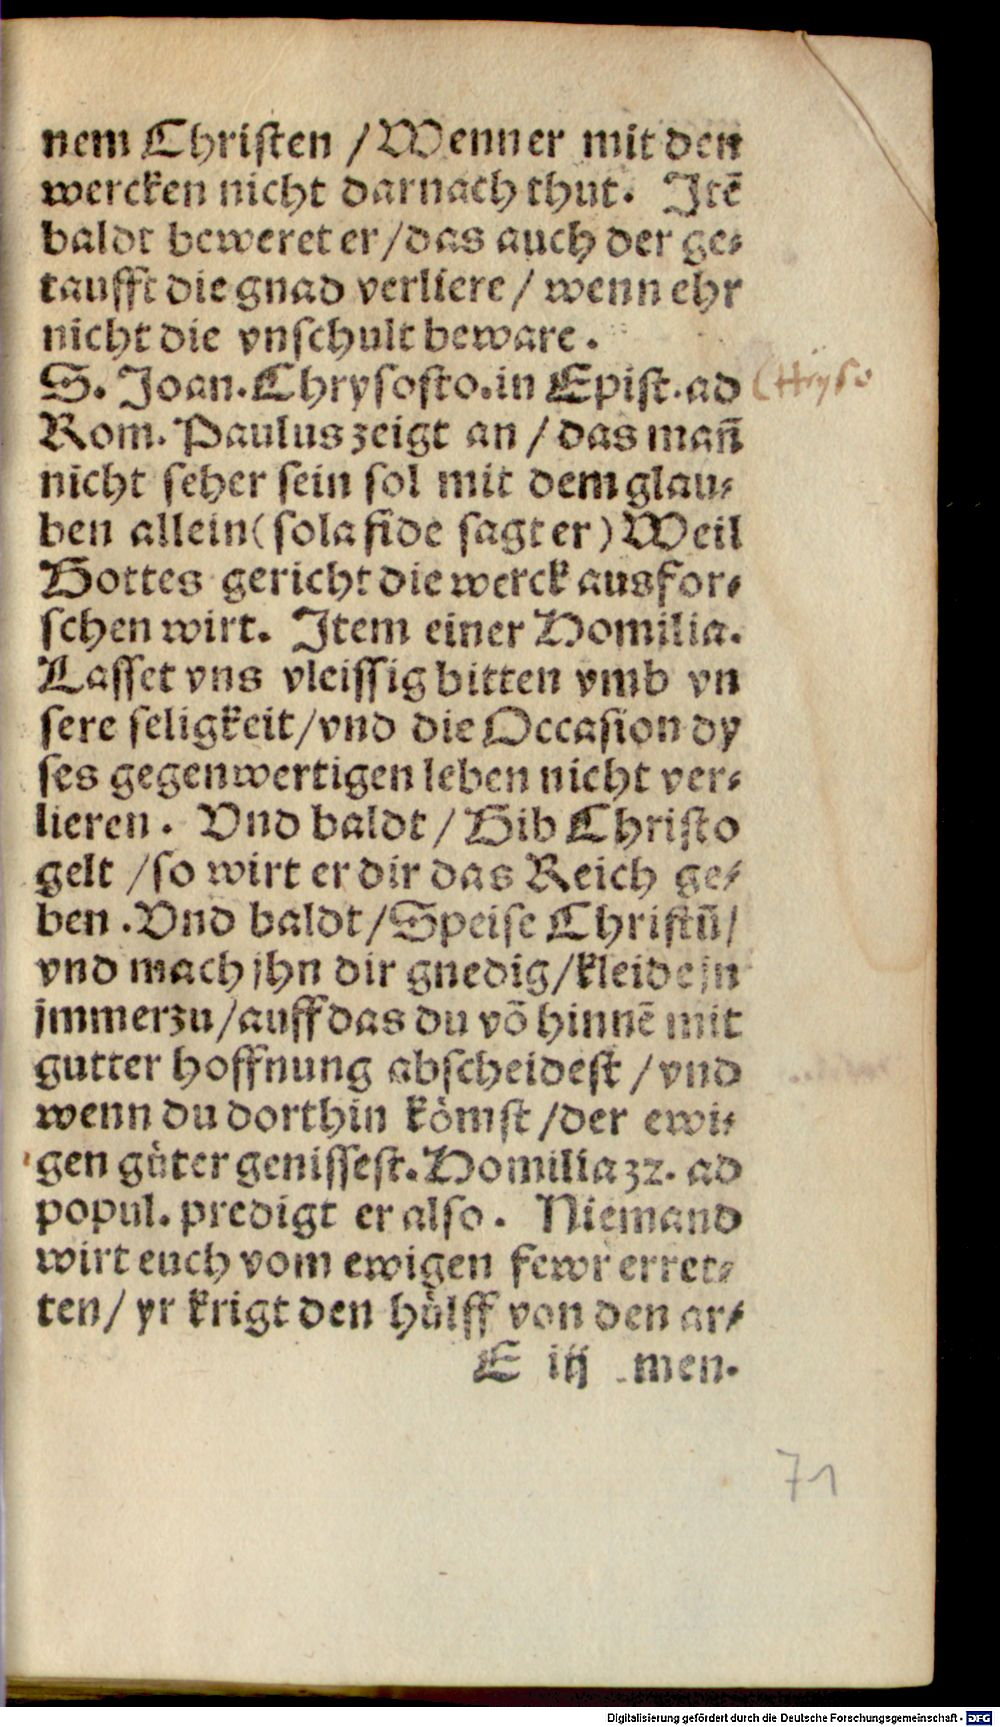 nem Christen / Wenner mit den
wercken nicht darnach thut. Jtē
baldt beweret er / das auch der ge⸗
taufft die gnad verliere / wenn ehr
nicht die vnschult beware.
S. Joan. Chrysosto. in Epist. ad
Chryso
Rom. Paulus zeigt an / das man̄
nicht seher sein sol mit dem glau⸗
ben allein (sola fide sagt er) Weil
Gottes gericht die werck ausfor⸗
schen wirt. Jtem einer Homilia.
Lasset vns vleissig bitten vmb vn
sere seligkeit / vnd die Occasion dy
ses gegenwertigen leben nicht ver⸗
lieren. Vnd baldt / Gib Christo
gelt / so wirt er dir das Reich ge⸗
ben. Vnd baldt / Speise Christū /
vnd mach jhn dir gnedig / kleide jn
jmmerzu / auff das du vō hinnē mit
gutter hoffnung abscheidest / vnd
wenn du dorthin kömst / der ewi⸗
gen güter genissest. Homilia 32. ad
popul. predigt er also. Niemand
wirt euch vom ewigen fewr erret⸗
ten / yr krigt den hülff von den ar⸗
E iij men.
71
Digitalisierung gefördert durch die Deutsche Forschungsgemeinschaft - DFG